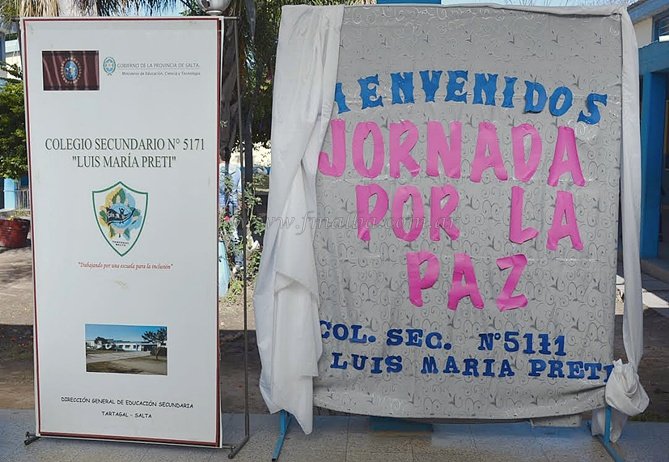 GOBIERNO DE LA PROVINCIA DE SALTA
Ministerio de Educación, Ciencia y Tecnología
COLEGIO SECUNDARIO N° 5171
"LUIS MARÍA PRETI"
"Trabajando por una escuela para la inclusión"
DIRECCIÓN GENERAL DE EDUCACIÓN SECUNDARIA
TARTAGAL - SALTA
BIENVENIDOS
JORNADA
POR LA
PAZ
COL. SEC. N°5171
LUIS MARIA PRETI
www.fmalba.com.ar